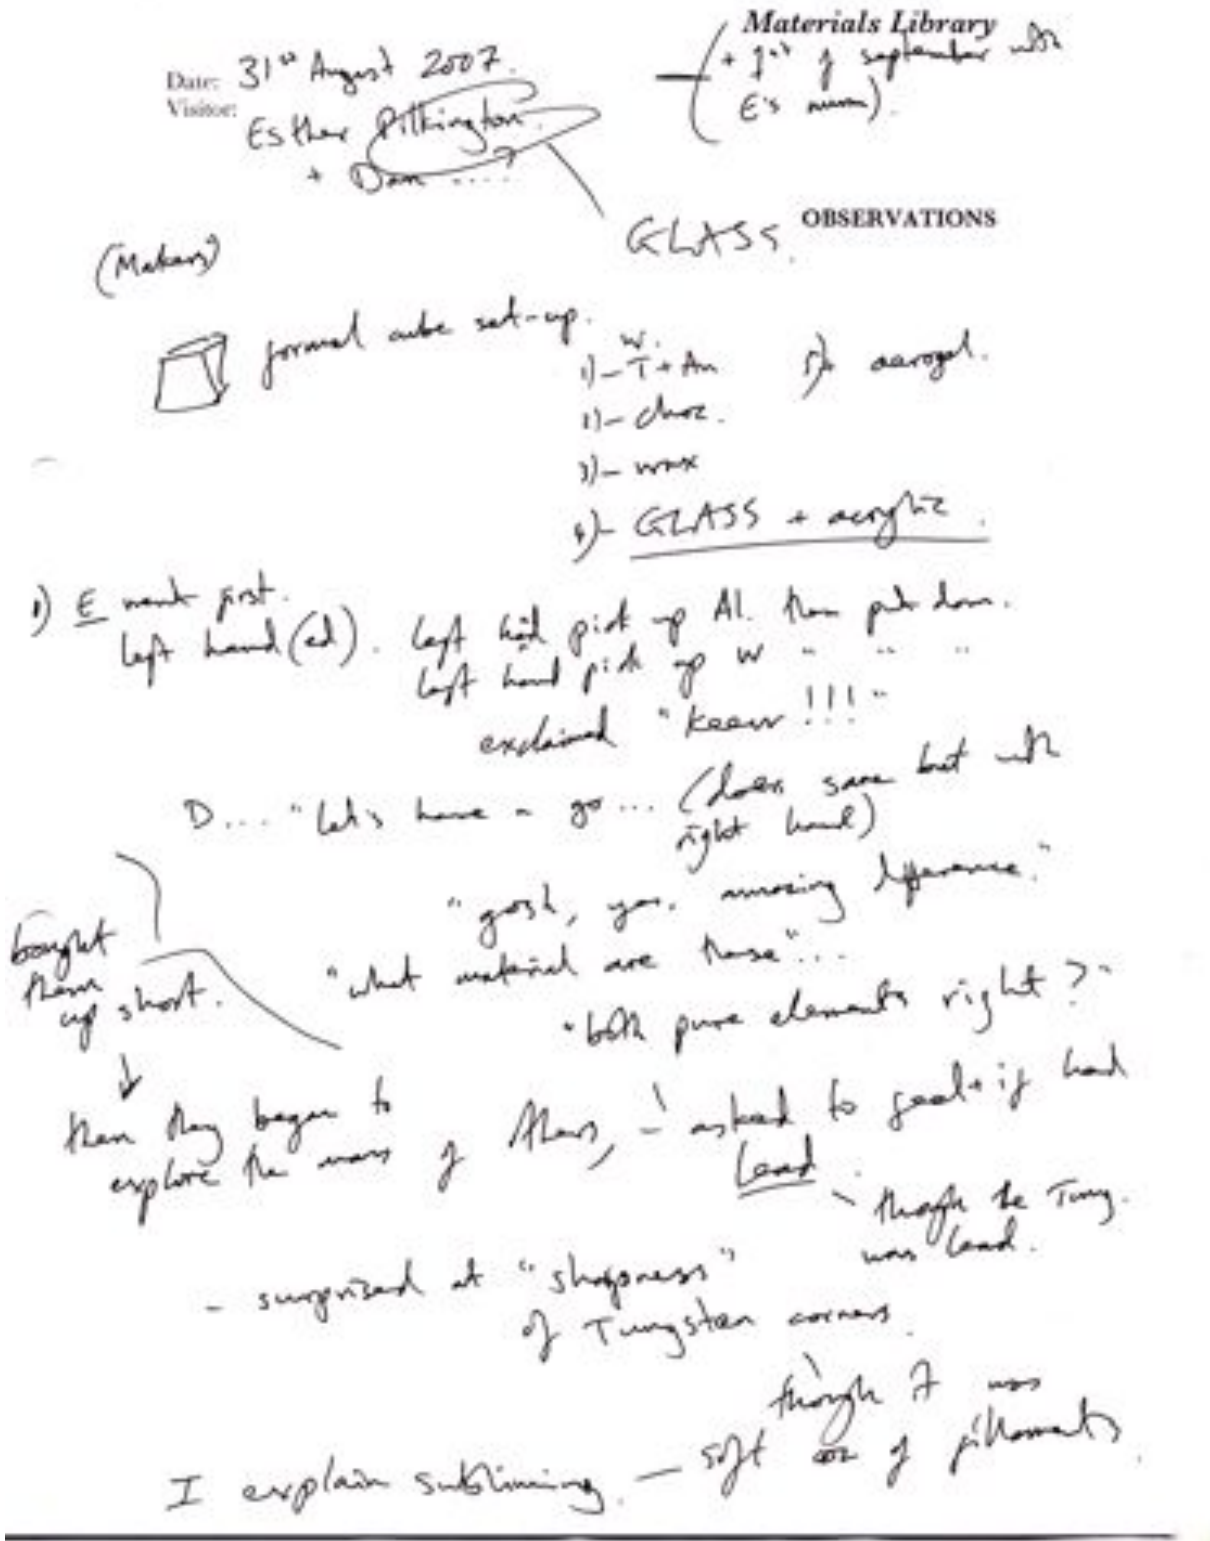 Materials Library
Date: 31st August 2007.
Visitor: Esther Pilkington.
+ Dan ....?
(+ 1st of september with
E's mum).
GLASS.
OBSERVATIONS
(Makers)
formal cube set-up.
W.
1) - T + Am
2) - choc.
3) - wax
4) - GLASS + acrylic.
5) aerogel.
1) E went first.
left hand(ed). left hand pick up Al. then put down.
left hand pick up W " " "
exclaimed "Keew!!!"
D... "let's have a go... (does same but with
right hand)
"gosh, yes, amazing difference."
"what material are these"...
"both pure elements right?"
bought
them
up short.
then they began to
explore the mass of others, - asked to feel + if had
Lead
- though the Tung.
was lead.
- surprised at "sharpness"
of Tungsten corners.
though it was
soft cos of fillaments.
I explain subliming. -